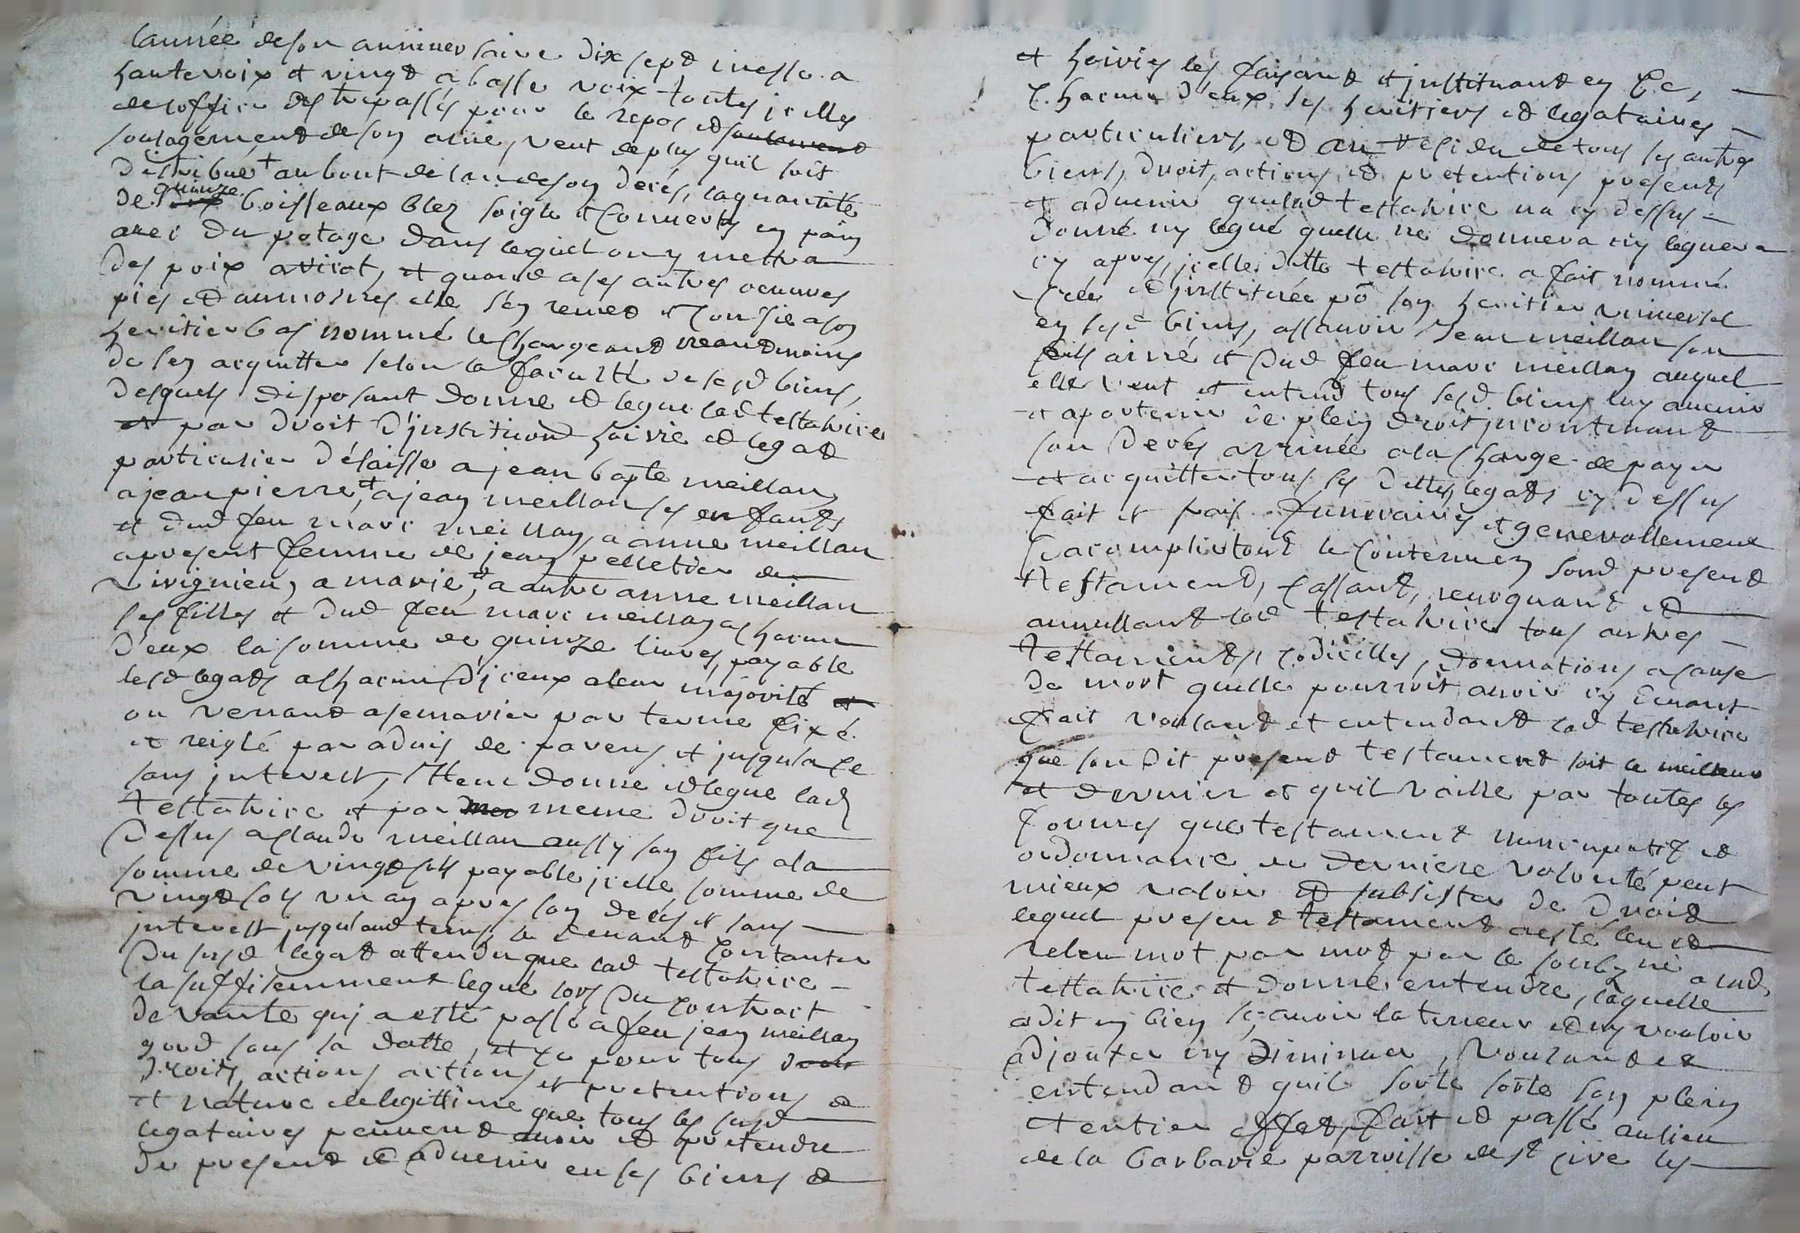 lannée deson anniversaire dix sept messe a
hautevoix et vingt a basse voix toutes jcelles
deloffice des trepassés pour le repos et soulement
soulagement de son ame, veut de plus quil soit
distribué + au bout de lan de son decés, laquantité
quinze
de boisseaux blez soigle et convertis en pain
avec du potage dans lequel on y mettra
des poix et quand a ses autres oeuvres
pies et aumosnes elle sen remet et confie a son
heritier bas nommé le chargeant neandmoins
de sen acquitter selon la faculté de sesd biens,
desquels disposant donne et legue lad testatrice
et par droit djnstitution hoirie et legat
particulier délaisse a jean bapte meillan
a jean pierre, et a jean meillan ses enfants
et dud feu marc meillan, a anne meillan
apresent femme de jean pelletier de
a marie, et a autre anne meillan
ses filles et dud feu marc meillan a chacun
deux la somme de quinze livres, payable
lesd legats a chacun djceux a leur majorité et
ou venant a se marier par terme fixé
et reiglé par advis de parens et jusqu'a ce
sans jnterest, Jtem donne et legue lad
testatrice et par meme droit que
dessus a claude meillan aussy son fils a la
somme de vingt sols payable jcelle somme de
vingt sols un an apres son decés et sans
jnterest jusqu'aud terme le devant contanter
du susd legat attendu que lad testatrice
la suffisemment legué lors du contract
de vante qui a esté passé a feu jean meillan
sous sa datte, et ce pour tous droit
droits, actions actions et pretentions de
et nature de legittime que tous les susd
legataires peuvent avoir et pretendre
de present et advenir en ses biens et
et hoiries les faisant et jnstituant en ce,
chacun deux, ses heritiers et legataires
particuliers, et au residu de tous ses autres
biens, droit, actions et pretentions presents
et advenir que lad testatrice na cy dessus
donné ny legué quelle ne donnera ny leguera
cy apres, jcelle ditte testatrice a fait nommé
créé et jnstituée po son heritier universel
en sesd biens, assavoir Jean meillan son
fils ainé et dud feu marc meillan auquel
elle veut et entend tous sesd biens luy avenir
et apartenir de plein droit jncontinant
son decés arrivée a la charge de payer
et acquitter tous ses dettes, legats cy dessus
fait et frais funeraires et generallement
dacomplir tout le contenu en sond present
testament, cassant, revoquant et
annullant lad testatrice tous autres
testaments, codicilles, donnations a cause
de mort quelle pourroit avoir cy devant
fait voulant et entendant lad testatrice
que son dit present testament soit le meilleur
et dernier et quil vaille par toutes les
formes que testament nuncupatif et
ordonnance de derniere volonté peut
mieux valoir et subsister de droit
lequel present testament a esté leu et
releu mot par mot par le soubz né a lad
testatrice et donné entendre, laquelle
a dit en bien scavoir la teneur et ny vouloir
adjouter ny diminuer, voulant et
entendant quil sorte sorte son plein
et entier effet, fait et passé au lieu
de la barbarie parroisse de st cire les